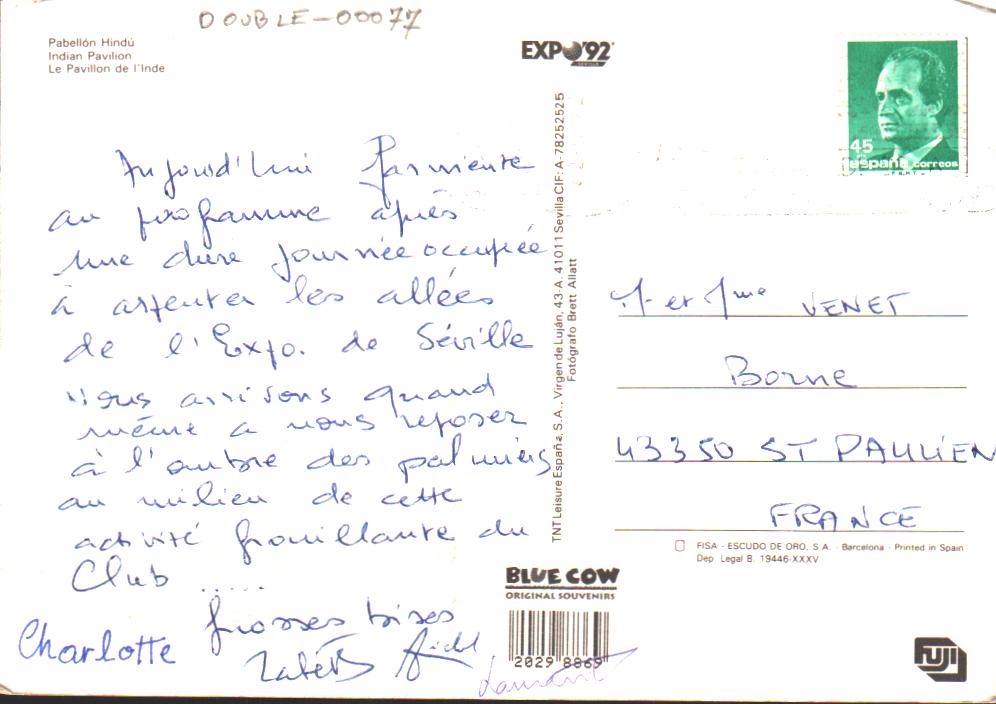 DOUBLE-00077
Pabellón Hindú
Indian Pavilion
Le Pavillon de l'Inde
EXPO'92
SEVILLA
45
españa correos
F.N.M.T.
Aujourd'hui Farniente
au programme après
une dure journée occupée
à arpenter les allées
de l'Expo. de Séville
Nous arrivons quand
même a nous reposer
à l'ombre des palmiers
au milieu de cette
activité grouillante du
Club .....
grosses bises
Charlotte
Laurent
TNT Leisure España, S.A., Virgen de Luján, 43-A. 41011 Sevilla CIF: A-78252525
Fotógrafo Brett Allatt
M et Mme VENET
Borne
43350 ST PAULIEN
FRANCE
FISA - ESCUDO DE ORO, S.A. - Barcelona - Printed in Spain
Dep. Legal B. 19446-XXXV
BLUE COW
ORIGINAL SOUVENIRS
2029 8869
FUJI